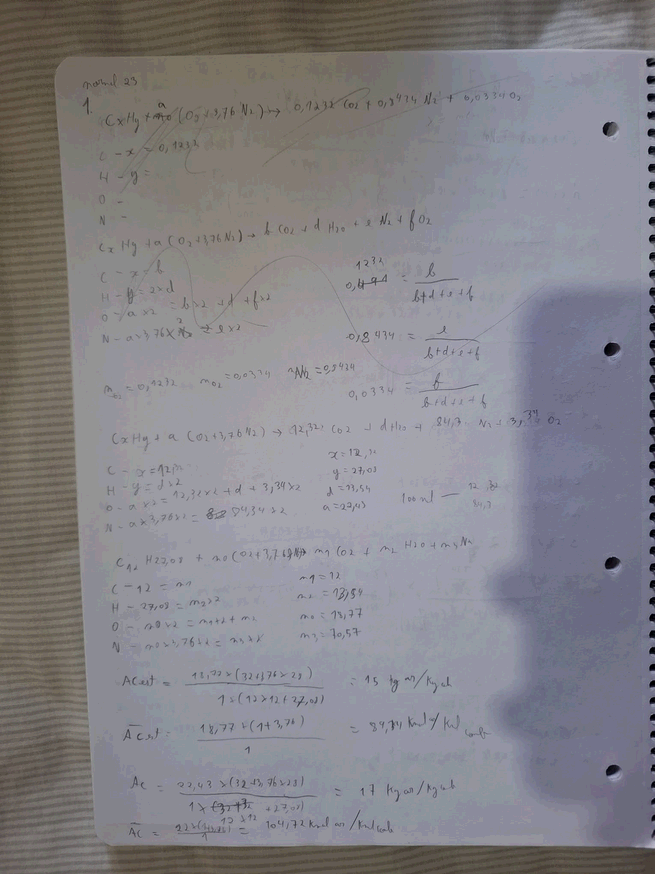 normal 23
1.
CxHy + a (O2 + 3,76 N2) → 0,1232 CO2 + 0,8434 N2 + 0,0334 O2
C - x = 0,1232
H - y =
O -
N -
CxHy + a (O2 + 3,76 N2) → b CO2 + d H2O + e N2 + f O2
C - x = b
H - y = 2×d
O - a×2 = b×2 + d + f×2
N - a×3,76×2 = e×2
0,1232 = b / (b+d+e+f)
0,8434 = e / (b+d+e+f)
0,0334 = f / (b+d+e+f)
= 0,1232 = 0,0334 N2 = 0,8434
CxHy + a (O2 + 3,76 N2) → 12,32 CO2 + d H2O + 84,3 N2 + 3,34 O2
C - x = 12,32
H - y = d×2
O - a×2 = 12,32×2 + d + 3,34×2
N - a×3,76×2 = 84,34×2
x = 12,32
y = 27,08
d = 13,54
a = 22,43
C12 H27,08 + n0 (O2 + 3,76 N2) → n1 CO2 + n2 H2O + n3 N2
C - 12 = n1
H - 27,08 = n2×2
O - n0×2 = n1×2 + n2
N - n0×3,76×2 = n3×2
n1 = 12
n2 = 13,54
n0 = 18,77
n3 = 70,57
ACest = 18,77×(32+3,76×28) / 1×(12×12+27,08) = 15 kg ar/kg
ACest = 18,77×(1+3,76) / 1 = 89,34 Kmol/Kmol comb
AC = 22,43×(32+3,76×28) / 1×(12×12+27,08) = 17 Kg ar/Kg comb
AC = = 104,72 Kmol ar/Kmol comb